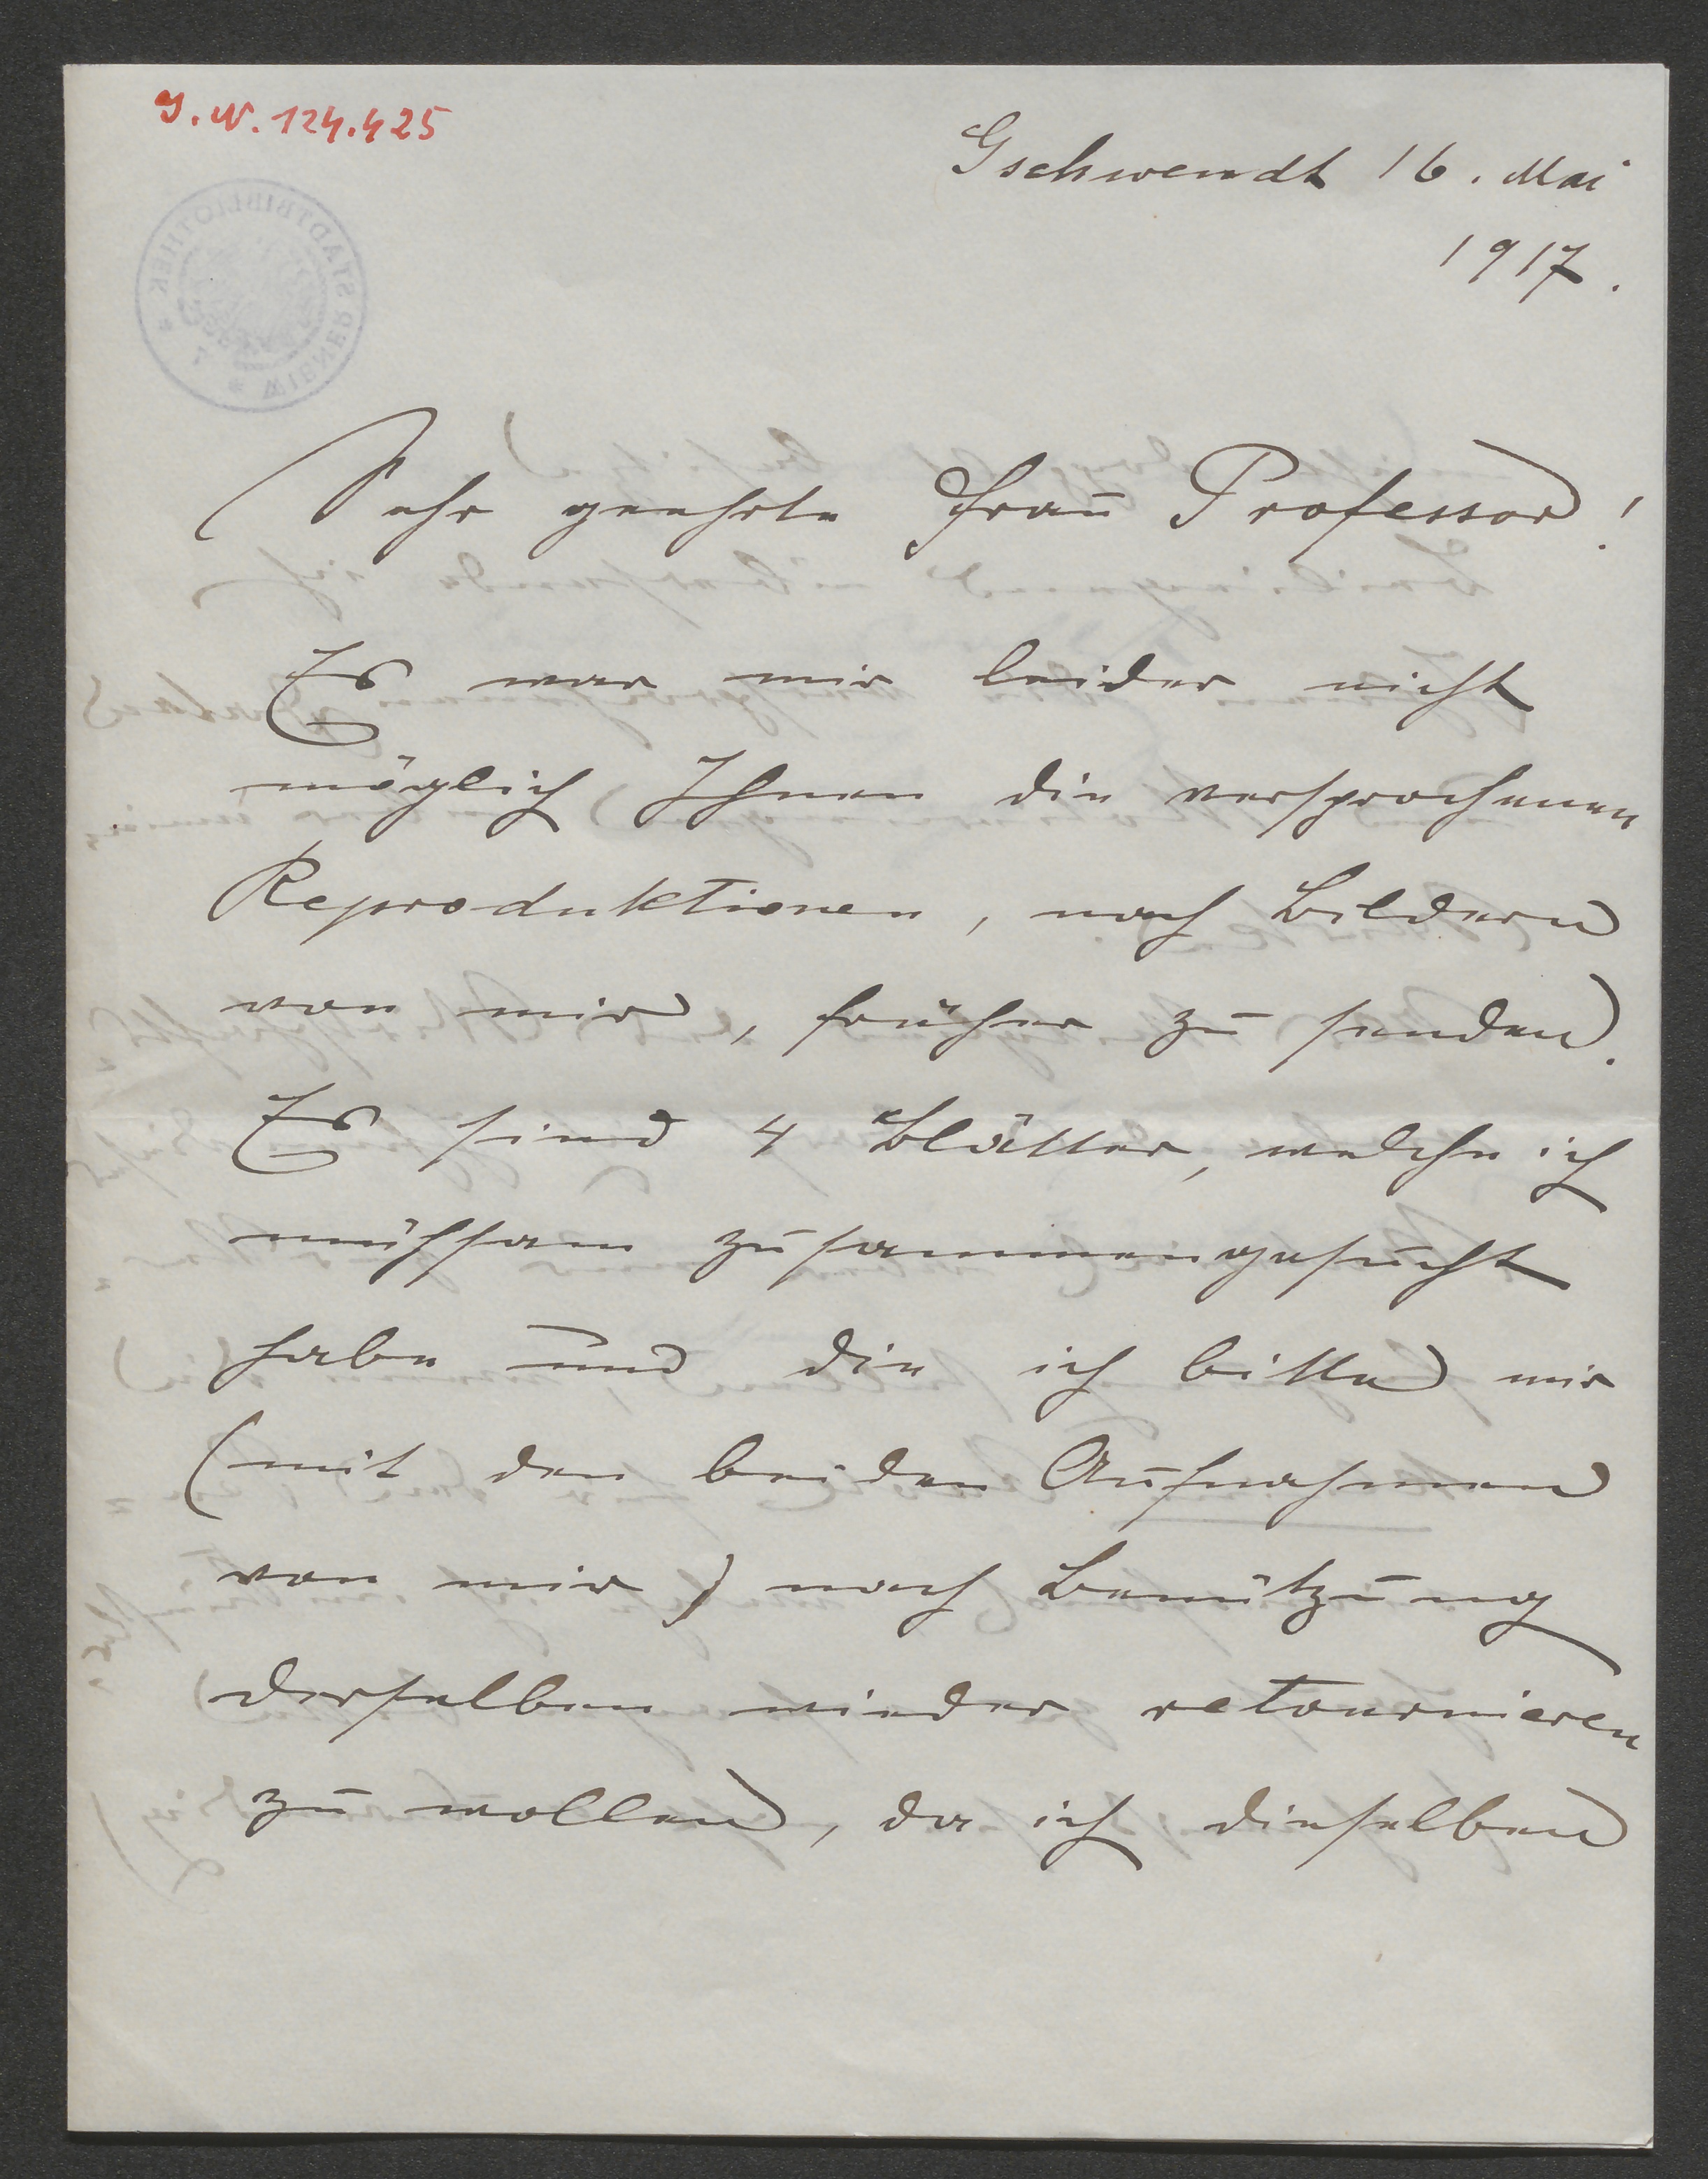 J.N. 124.425
Gschwendt 16. Mai
1917.
WIENER STADTBIBLIOTHEK
Sehr geehrte Frau Professor!
Es war mir leider nicht
möglich Ihnen die versprochenen
Reproduktionen, nach Bildern
von mir, früher zu senden.
Es sind 4 Blätter, welche ich
mühsam zusammengesucht
habe und die ich bitte mir
(mit den beiden Aufnahmen
von mir) nach Benützung
derselben wieder retournieren
zu wollen, da ich dieselben